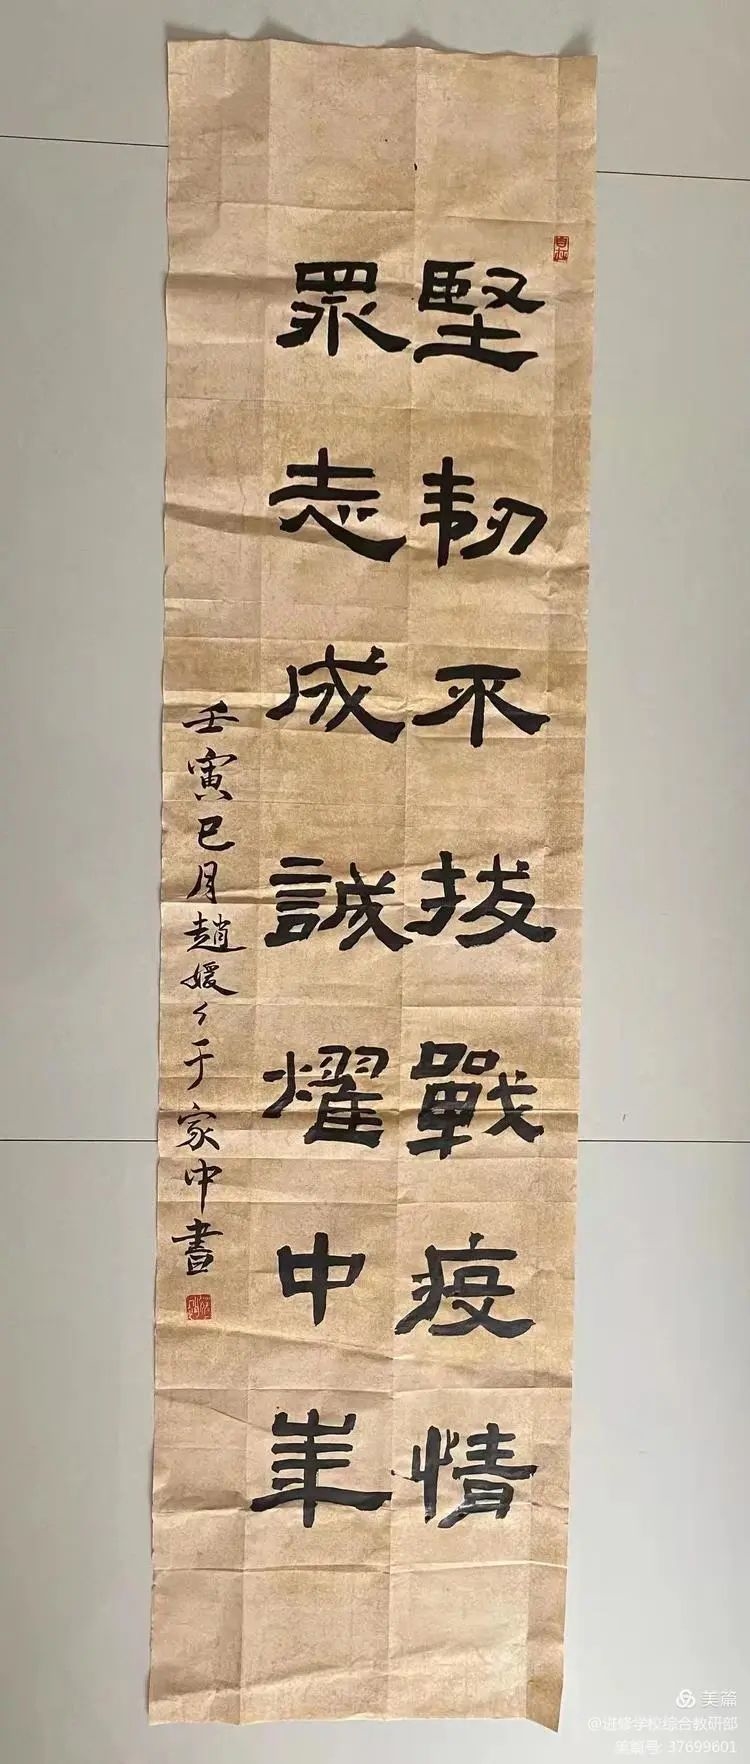 堅韌不拔戰疫情
眾志成誠耀中華
壬寅巳月趙媛々于家中書
美篇
@进修学校综合教研部
美篇号: 37699601